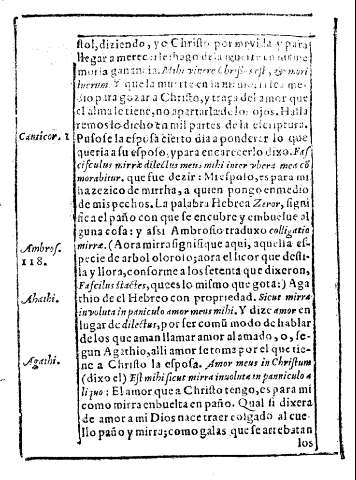 stol, diziendo, yo Christo por mi vida y para
llegar a merecerle hago de la muerte en mi me
moria ganancia. Mihi vivere Christus est, & mori
lucrum. Y que la muerte en la memoria sea me
dio para gozar a Christo, y traça del amor que
el alma le tiene, no apartarle de los ojos. Halla
remos lo dicho en mil partes de la escriptura.
Cantico. 1
Pusose la esposa cierto dia a ponderar lo que
queria a su esposo, y para encarecerlo dixo. Fas
ciculus mirræ dilectus meus mihi inter ubera mea cõ
morabitur. que fue dezir: Mi esposo, es para mi
hazezico de mirrha, a quien pongo en medio
de mis pechos. La palabra Hebrea Zeror, signi
fica el paño con que se encubre y embuelue al
guna cosa: y assi Ambrosio traduxo colligatio
Ambros.
118.
mirræ. (Aora mirra signifique aqui, aquella es-
pecie de arbol oloroso; aora el licor que desti-
la y llora, conforme a los setenta que dixeron,
Fasciculus stactes, que es lo mismo que gota:) Aga
Ahathi.
thio de el Hebreo con propriedad. Sicut mirra
involuta in paniculo amor meus mihi. Y dize amor en
lugar de dilectus, por ser comũ modo de hablar
de los que aman llamar amor al amado, o, se-
gun Agathio, alli amor se toma por el que tie-
Agathi.
ne a Christo la esposa. Amor meus in Christum
(dixo el) Est mihi sicut mirra involuta in panniculo a
liquo: El amor que a Christo tengo, es para mi
como mirra enbuelta en paño. Qual si dixera
de amor a mi Dios nace traer colgado al cue-
llo paño y mirra; como galas que se arrebatan
los